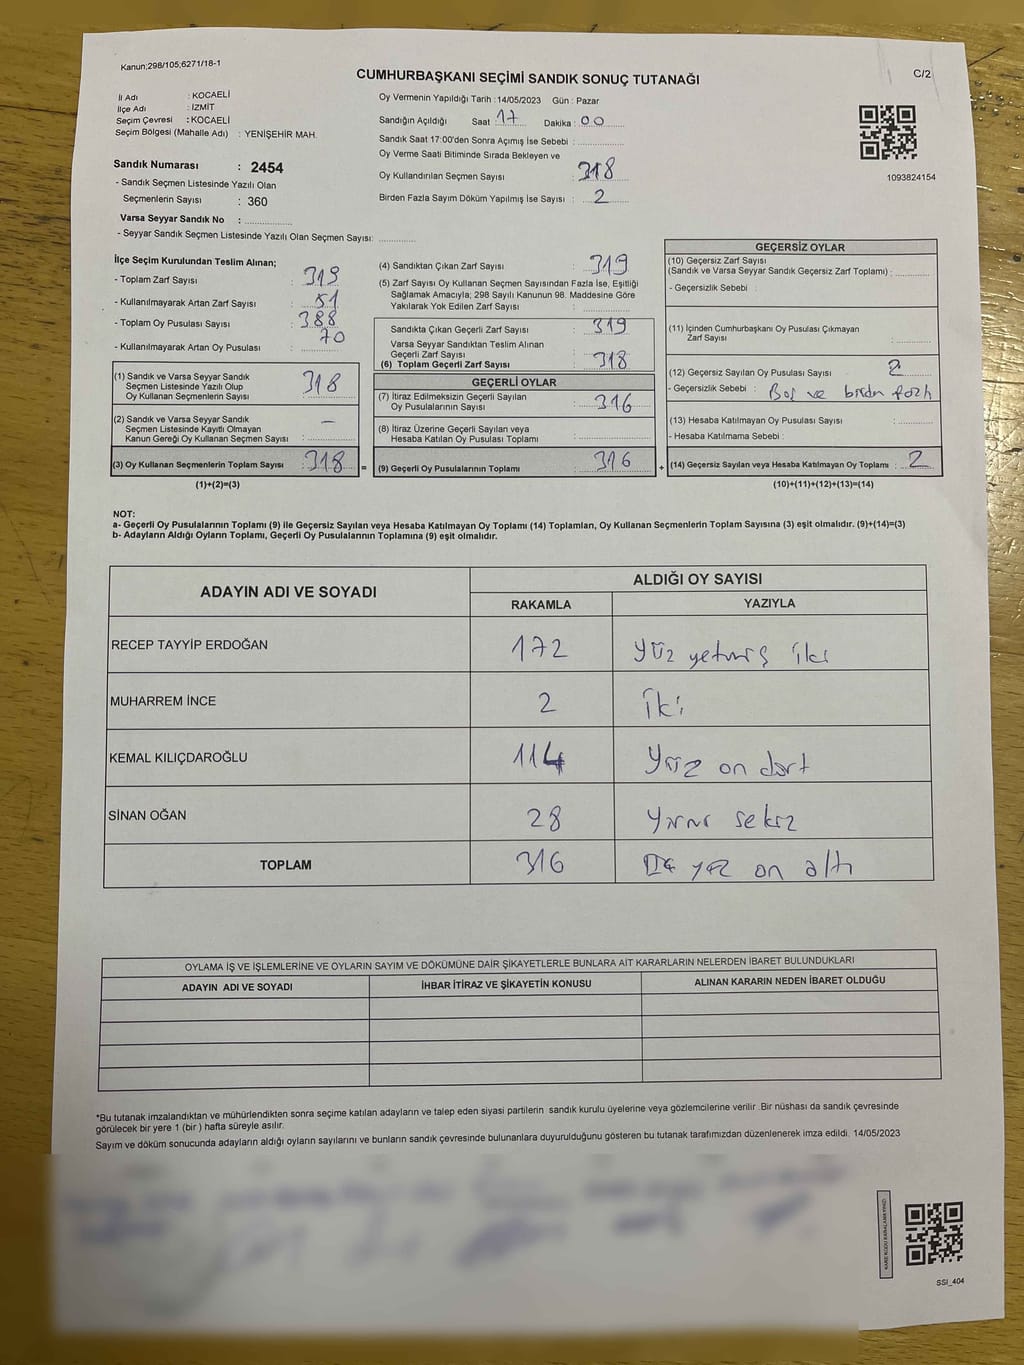 Kanun;298/105;6271/18-1
CUMHURBAŞKANI SEÇİMİ SANDIK SONUÇ TUTANAĞI
C/2
İl Adı : KOCAELİ
İlçe Adı : İZMİT
Seçim Çevresi : KOCAELİ
Seçim Bölgesi (Mahalle Adı) : YENİŞEHİR MAH.
Sandık Numarası : 2454
- Sandık Seçmen Listesinde Yazılı Olan
Seçmenlerin Sayısı : 360
Varsa Seyyar Sandık No :
- Seyyar Sandık Seçmen Listesinde Yazılı Olan Seçmen Sayısı:
Oy Vermenin Yapıldığı Tarih :14/05/2023 Gün : Pazar
Sandığın Açıldığı Saat 17 Dakika : 00
Sandık Saat 17:00'den Sonra Açımış İse Sebebi :
Oy Verme Saati Bitiminde Sırada Bekleyen ve
Oy Kullandırılan Seçmen Sayısı : 318
Birden Fazla Sayım Döküm Yapılmış İse Sayısı : 2
1093824154
İlçe Seçim Kurulundan Teslim Alınan;
- Toplam Zarf Sayısı :
- Kullanılmayarak Artan Zarf Sayısı : 51
- Toplam Oy Pusulası Sayısı : 388
- Kullanılmayarak Artan Oy Pusulası : 70
(1) Sandık ve Varsa Seyyar Sandık
Seçmen Listesinde Yazılı Olup
Oy Kullanan Seçmenlerin Sayısı : 318
(2) Sandık ve Varsa Seyyar Sandık
Seçmen Listesinde Kayıtlı Olmayan
Kanun Gereği Oy Kullanan Seçmen Sayısı : -
(3) Oy Kullanan Seçmenlerin Toplam Sayısı : 318 =
(1)+(2)=(3)
(4) Sandıktan Çıkan Zarf Sayısı : 319
(5) Zarf Sayısı Oy Kullanan Seçmen Sayısından Fazla İse, Eşitliği
Sağlamak Amacıyla; 298 Sayılı Kanunun 98. Maddesine Göre
Yakılarak Yok Edilen Zarf Sayısı :
Sandıkta Çıkan Geçerli Zarf Sayısı : 319
Varsa Seyyar Sandıktan Teslim Alınan
Geçerli Zarf Sayısı :
(6) Toplam Geçerli Zarf Sayısı : 318
GEÇERLİ OYLAR
(7) İtiraz Edilmeksizin Geçerli Sayılan
Oy Pusulalarının Sayısı : 316
(8) İtiraz Üzerine Geçerli Sayılan veya
Hesaba Katılan Oy Pusulası Toplamı :
(9) Geçerli Oy Pusulalarının Toplamı : 316 +
GEÇERSİZ OYLAR
(10) Geçersiz Zarf Sayısı
(Sandık ve Varsa Seyyar Sandık Geçersiz Zarf Toplamı) :
- Geçersizlik Sebebi :
(11) İçinden Cumhurbaşkanı Oy Pusulası Çıkmayan
Zarf Sayısı :
(12) Geçersiz Sayılan Oy Pusulası Sayısı : 2
- Geçersizlik Sebebi : Boş ve birden fazla
(13) Hesaba Katılmayan Oy Pusulası Sayısı :
- Hesaba Katılmama Sebebi :
(14) Geçersiz Sayılan veya Hesaba Katılmayan Oy Toplamı : 2
(10)+(11)+(12)+(13)=(14)
NOT:
a- Geçerli Oy Pusulalarının Toplamı (9) ile Geçersiz Sayılan veya Hesaba Katılmayan Oy Toplamı (14) Toplamları, Oy Kullanan Seçmenlerin Toplam Sayısına (3) eşit olmalıdır. (9)+(14)=(3)
b- Adayların Aldığı Oyların Toplamı, Geçerli Oy Pusulalarının Toplamına (9) eşit olmalıdır.
ADAYIN ADI VE SOYADI ALDIĞI OY SAYISI
RAKAMLA YAZIYLA
RECEP TAYYİP ERDOĞAN 172 Yüz yetmiş iki
MUHARREM İNCE 2 iki
KEMAL KILIÇDAROĞLU 114 Yüz on dört
SİNAN OĞAN 28 Yirmi sekiz
TOPLAM 316 Üç yüz on altı
OYLAMA İŞ VE İŞLEMLERİNE VE OYLARIN SAYIM VE DÖKÜMÜNE DAİR ŞİKAYETLERLE BUNLARA AİT KARARLARIN NELERDEN İBARET BULUNDUKLARI
ADAYIN ADI VE SOYADI İHBAR İTİRAZ VE ŞİKAYETİN KONUSU ALINAN KARARIN NEDEN İBARET OLDUĞU
*Bu tutanak imzalandıktan ve mühürlendikten sonra seçime katılan adayların ve talep eden siyasi partilerin sandık kurulu üyelerine veya gözlemcilerine verilir .Bir nüshası da sandık çevresinde
görülecek bir yere 1 (bir ) hafta süreyle asılır.
Sayım ve döküm sonucunda adayların aldığı oyların sayılarını ve bunların sandık çevresinde bulunanlara duyurulduğunu gösteren bu tutanak tarafımızdan düzenlenerek imza edildi. 14/05/2023
SSI_404